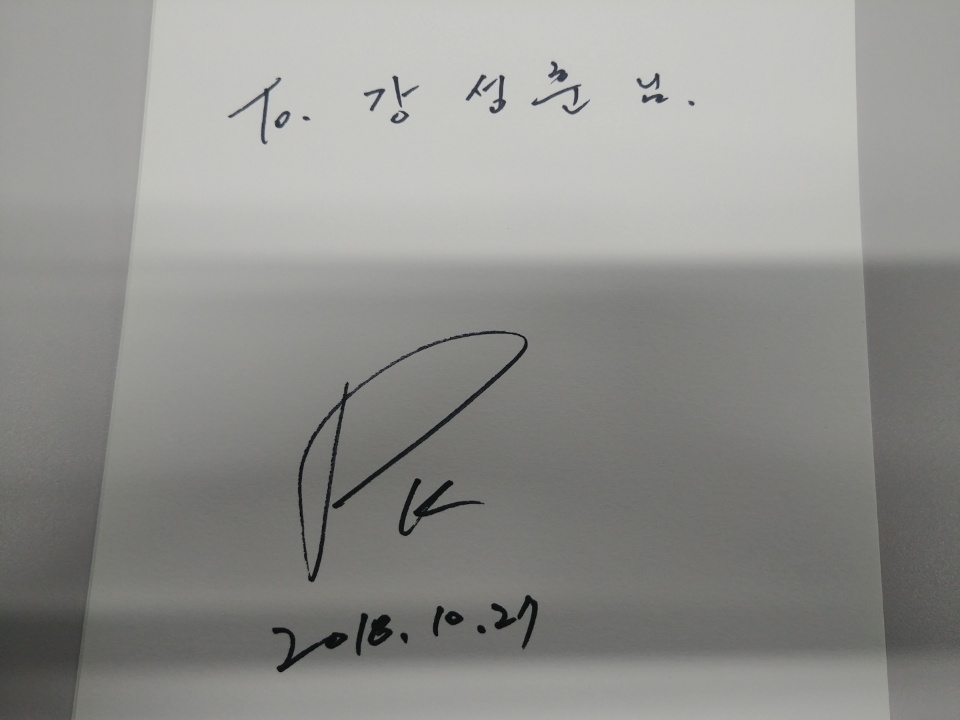 To. 강 성훈 님.
PK
2018.10.27